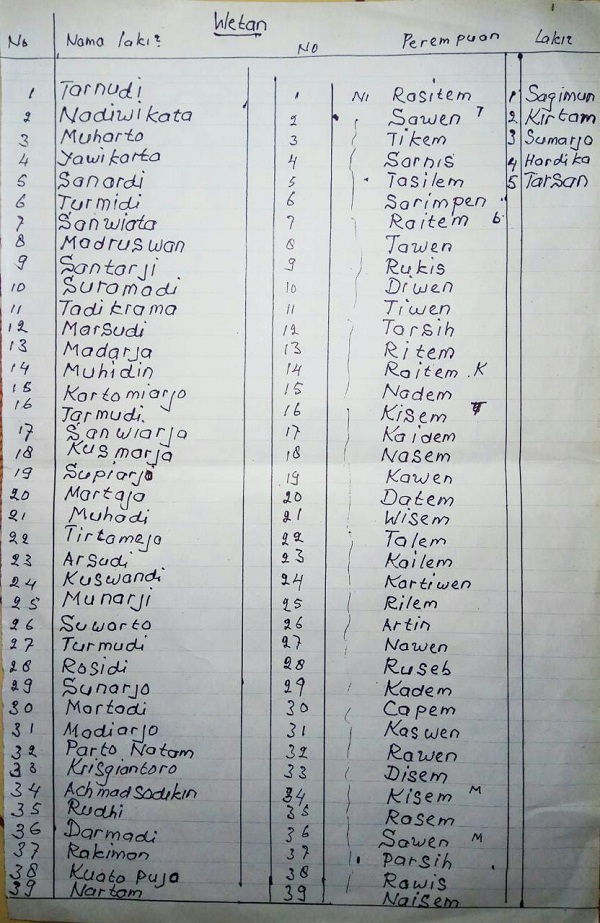 Wetan
No Nama laki2 No Perempuan Laki2
1 Tarnudi 1 Ni Rasitem 1 Sagimun
2 Nadiwikata 2 Sawen T 2 Kirtam
3 Muharto 3 Tikem 3 Sumarjo
4 Yawikarta 4 Sarnis 4 Hardika
5 Sanardi 5 Tasilem 5 Tarsan
6 Turmidi 6 Sarimpen
7 Sanwiata 7 Raitem b
8 Madruswan 8 Tawen
9 Santarji 9 Rukis
10 Suramadi 10 Diwen
11 Tadikrama 11 Tiwen
12 Marsudi 12 Tarsih
13 Madarja 13 Ritem
14 Muhidin 14 Raitem .K
15 Kartomiarjo 15 Nadem
16 Jarmudi. 16 Kisem T
17 Sanwiarja 17 Kaidem
18 Kusmarja 18 Nasem
19 Supiarjo 19 Kawen
20 Martaja 20 Datem
21 Muhadi 21 Wisem
22 Tirtameja 22 Talem
23 Arsudi 23 Kailem
24 Kuswandi 24 Kartiwen
25 Munarji 25 Rilem
26 Suwarto 26 Artin
27 Turmudi 27 Nawen
28 Rosidi 28 Ruseb
29 Sunarjo 29 Kadem
30 Martadi 30 Capem
31 Madiarjo 31 Kaswen
32 Parto Natam 32 Rawen
33 Krisgiantoro 33 Disem
34 Achmadsodikin 34 Kisem M
35 Rudhi 35 Rasem
36 Darmadi 36 Sawen M
37 Rakiman 37 Parsih
38 Kuato Puja 38 Rawis
39 Nartam 39 Naisem